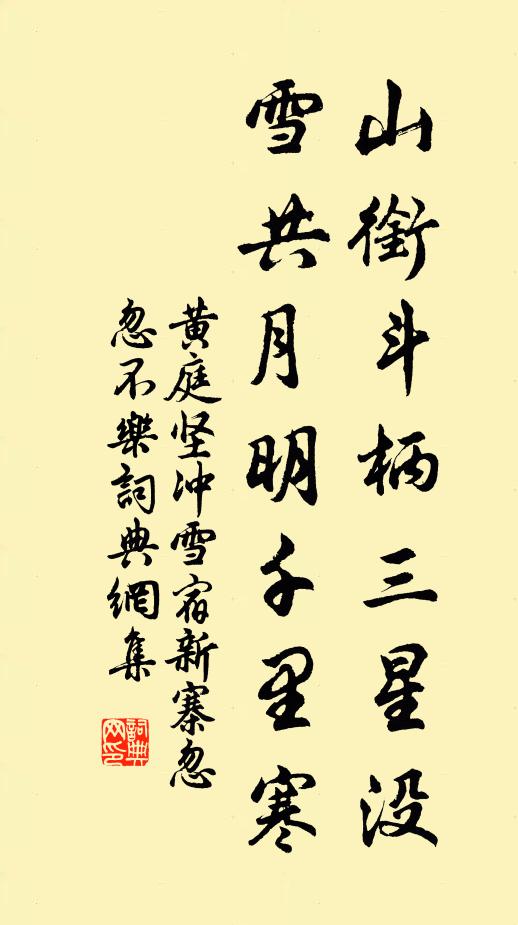 山銜斗柄三星没
雪共月明千里寒
黄庭坚冲雪宿新寨忽
忽不樂詞典網集
詞典
网印